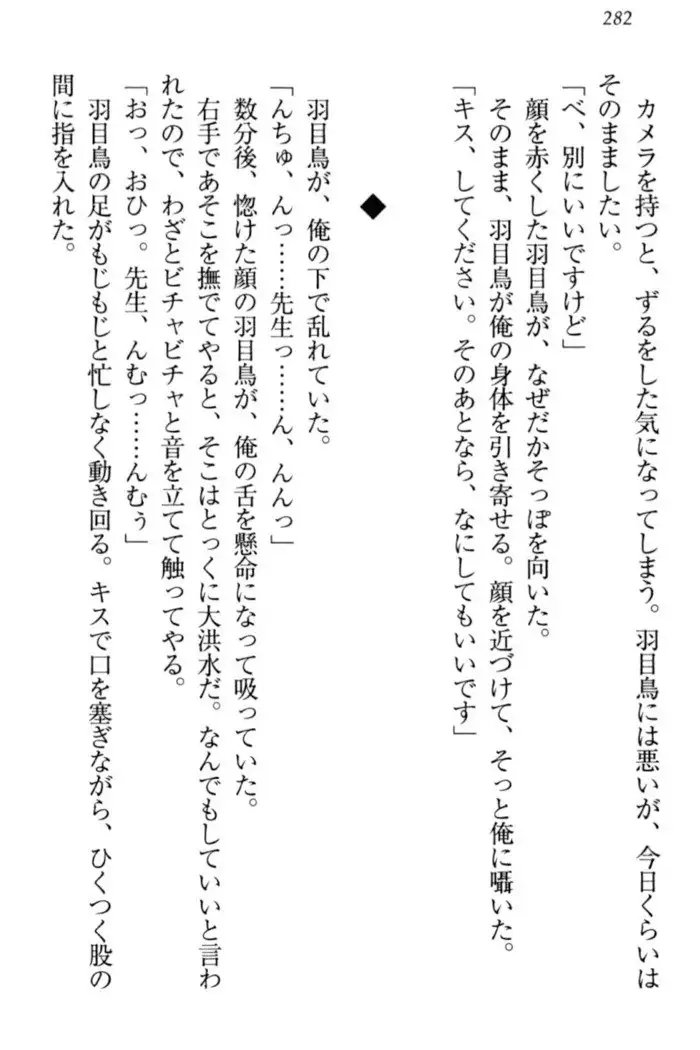 282
カメラを持つと、ずるをした気になってしまう。羽目鳥には悪いが、今日くらいは
そのまましたい。
「べ、別にいいですけど」
顔を赤くした羽目鳥が、なぜだかそっぽを向いた。
そのまま、羽目鳥が俺の身体を引き寄せる。顔を近づけて、そっと俺に囁いた。
「キス、してください。そのあとなら、なにしてもいいです」
◆
羽目鳥が、俺の下で乱れていた。
「んちゅ、んっ……先生っ……ん、んんっ」
数分後、惚けた顔の羽目鳥が、俺の舌を懸命になって吸っていた。
右手であそこを撫でてやると、そこはとっくに大洪水だ。なんでもしていいと言わ
れたので、わざとビチャビチャと音を立てて触ってやる。
「おっ、おひっ。先生、んむっ……んむぅ」
羽目鳥の足がもじもじと忙しなく動き回る。キスで口を塞ぎながら、ひくつく股の
間に指を入れた。